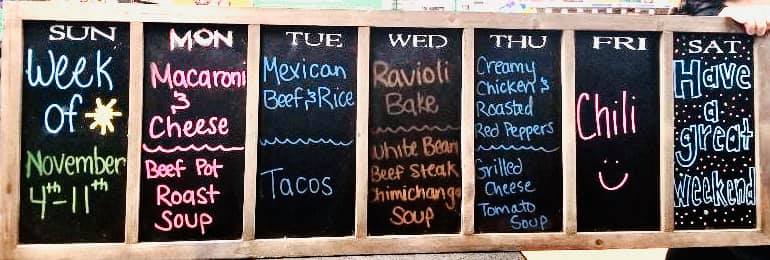 SUN
Week
of
November
4th-11th
MON
Macaroni
&
Cheese
Beef Pot
Roast
Soup
TUE
Mexican
Beef & Rice
Tacos
WED
Ravioli
Bake
White Bean
Beef Steak
Chimichanga
Soup
THU
Creamy
Chicken &
Roasted
Red Peppers
Grilled
Cheese
Tomato
Soup
FRI
Chili
SAT
Have
a
great
weekend